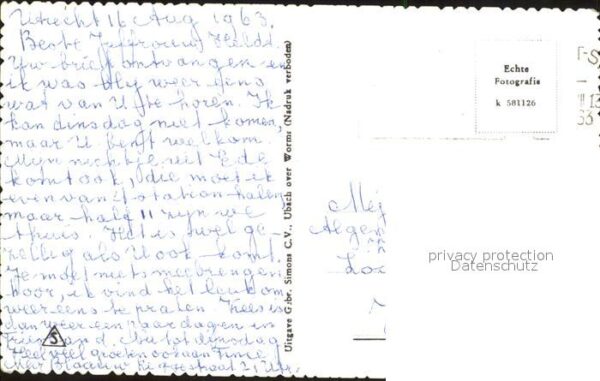 Utrecht 16 Aug 1963.
Beste Juffrouw Heldt.
Uw brief ontvangen en
ik was blij weer eens
wat van U te horen. Ik
kan dinsdag niet komen,
maar U bent welkom.
Mijn nichtje uit Ede
komt ook, die moet ik
even van 't station halen
maar half 11 zijn we
thuis. Het is wel ge-
zellig als U ook komt.
Je moet niets meebrengen
hoor, ik vind het leuk om
weer eens te praten. Kees is
dan weer een paar dagen in
land. Nu tot dinsdag
Heel veel groeten ook aan
21
S
Uitgave Gebr. Simons C.V., Ubach over Worms (Nadruk verboden)
Echte
Fotografie
k 581126
Mej
Algem